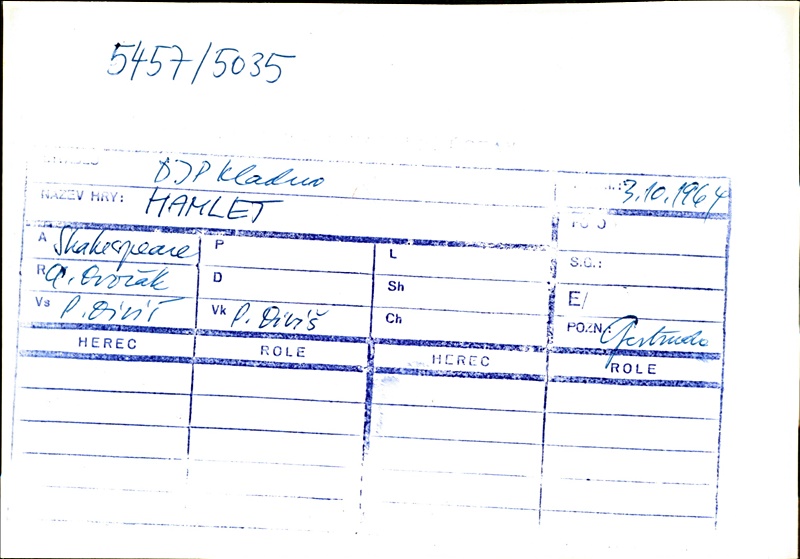 5457/5035
DJP Kladno
3.10.1964
NÁZEV HRY: HAMLET
A Shakespeare P L
S.C.:
R Dvořák D Sh
E/
Vs P. Diviš Vk P. Diviš Ch
POZN.: Gertruda
HEREC ROLE HEREC ROLE